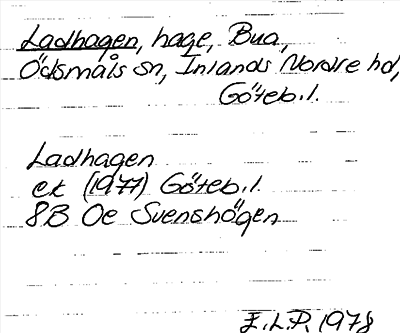 Ladhagen, hage, Bua,
Ödsmåls sn, Inlands Nordre hd,
Göteb.l.
Ladhagen
ek (1977) Göteb.l.
8B Oe Svenshögen
E.L.P. 1978